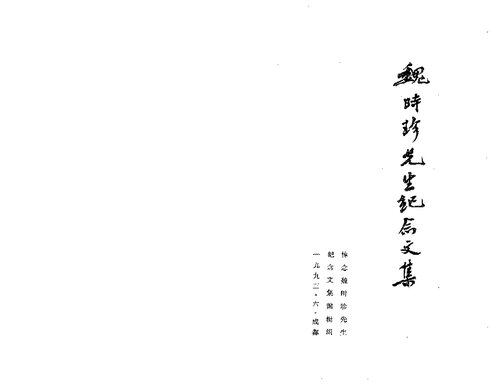 魏時珍先生紀念文集
悼念魏时珍先生
纪念文集编辑组
一九九三·六·成都